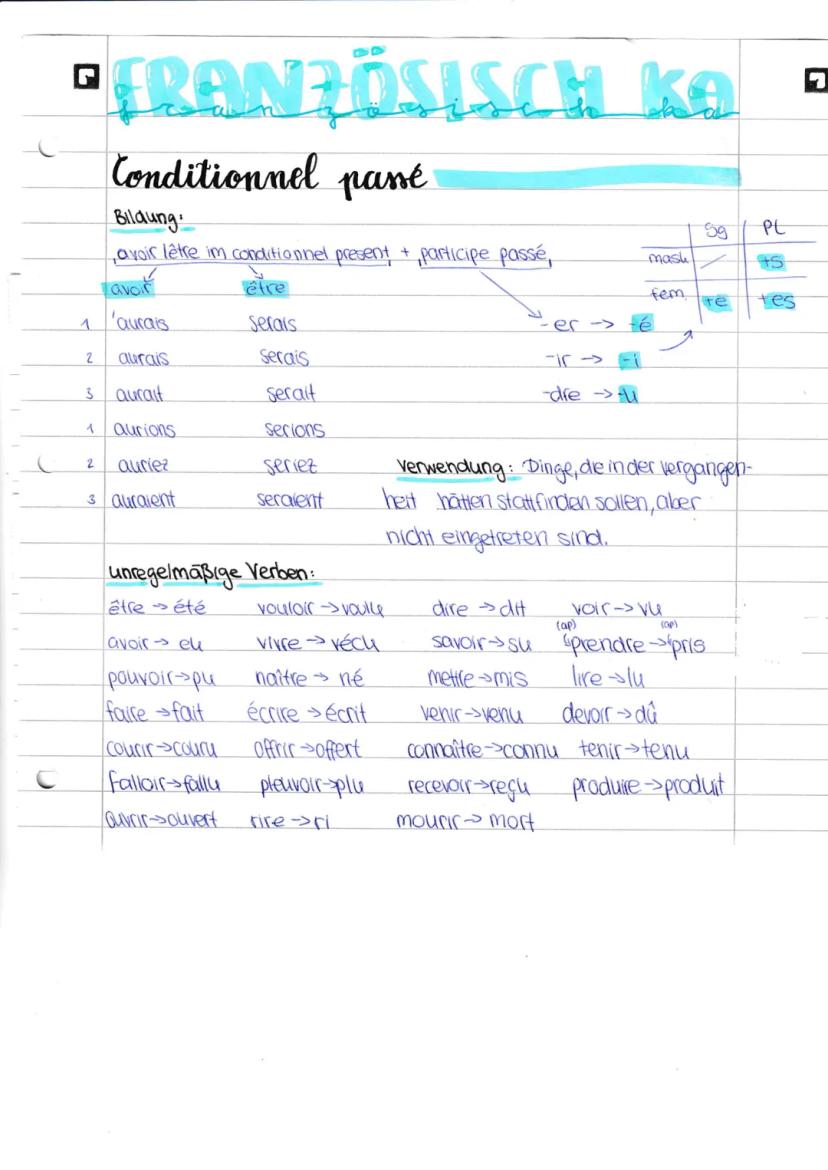 FRANZÖSISCH KA
französisch ka
Conditionnel passé
Bildung:
avoir / être im conditionnel present + participe passé
Sg PL
mask / +s
fem. +e +es
avoir être
1 'aurais serais
2 aurais serais
3 aurait serait
1 aurions serions
2 auriez seriez
3 auraient seraient
-er -> -é
-ir -> -i
-dre -> -u
Verwendung: Dinge, die in der Vergangen-
heit hätten stattfinden sollen, aber
nicht eingetreten sind.
unregelmäßige Verben:
être -> été vouloir -> voulu dire -> dit voir -> vu
avoir -> eu vivre -> vécu savoir -> su (ap) prendre -> (ap) pris
pouvoir -> pu naître -> né mettre -> mis lire -> lu
faire -> fait écrire -> écrit venir -> venu devoir -> dû
courir -> couru offrir -> offert connaître -> connu tenir -> tenu
falloir -> fallu pleuvoir -> plu recevoir -> reçu produire -> produit
ouvrir -> ouvert rire -> ri mourir -> mort